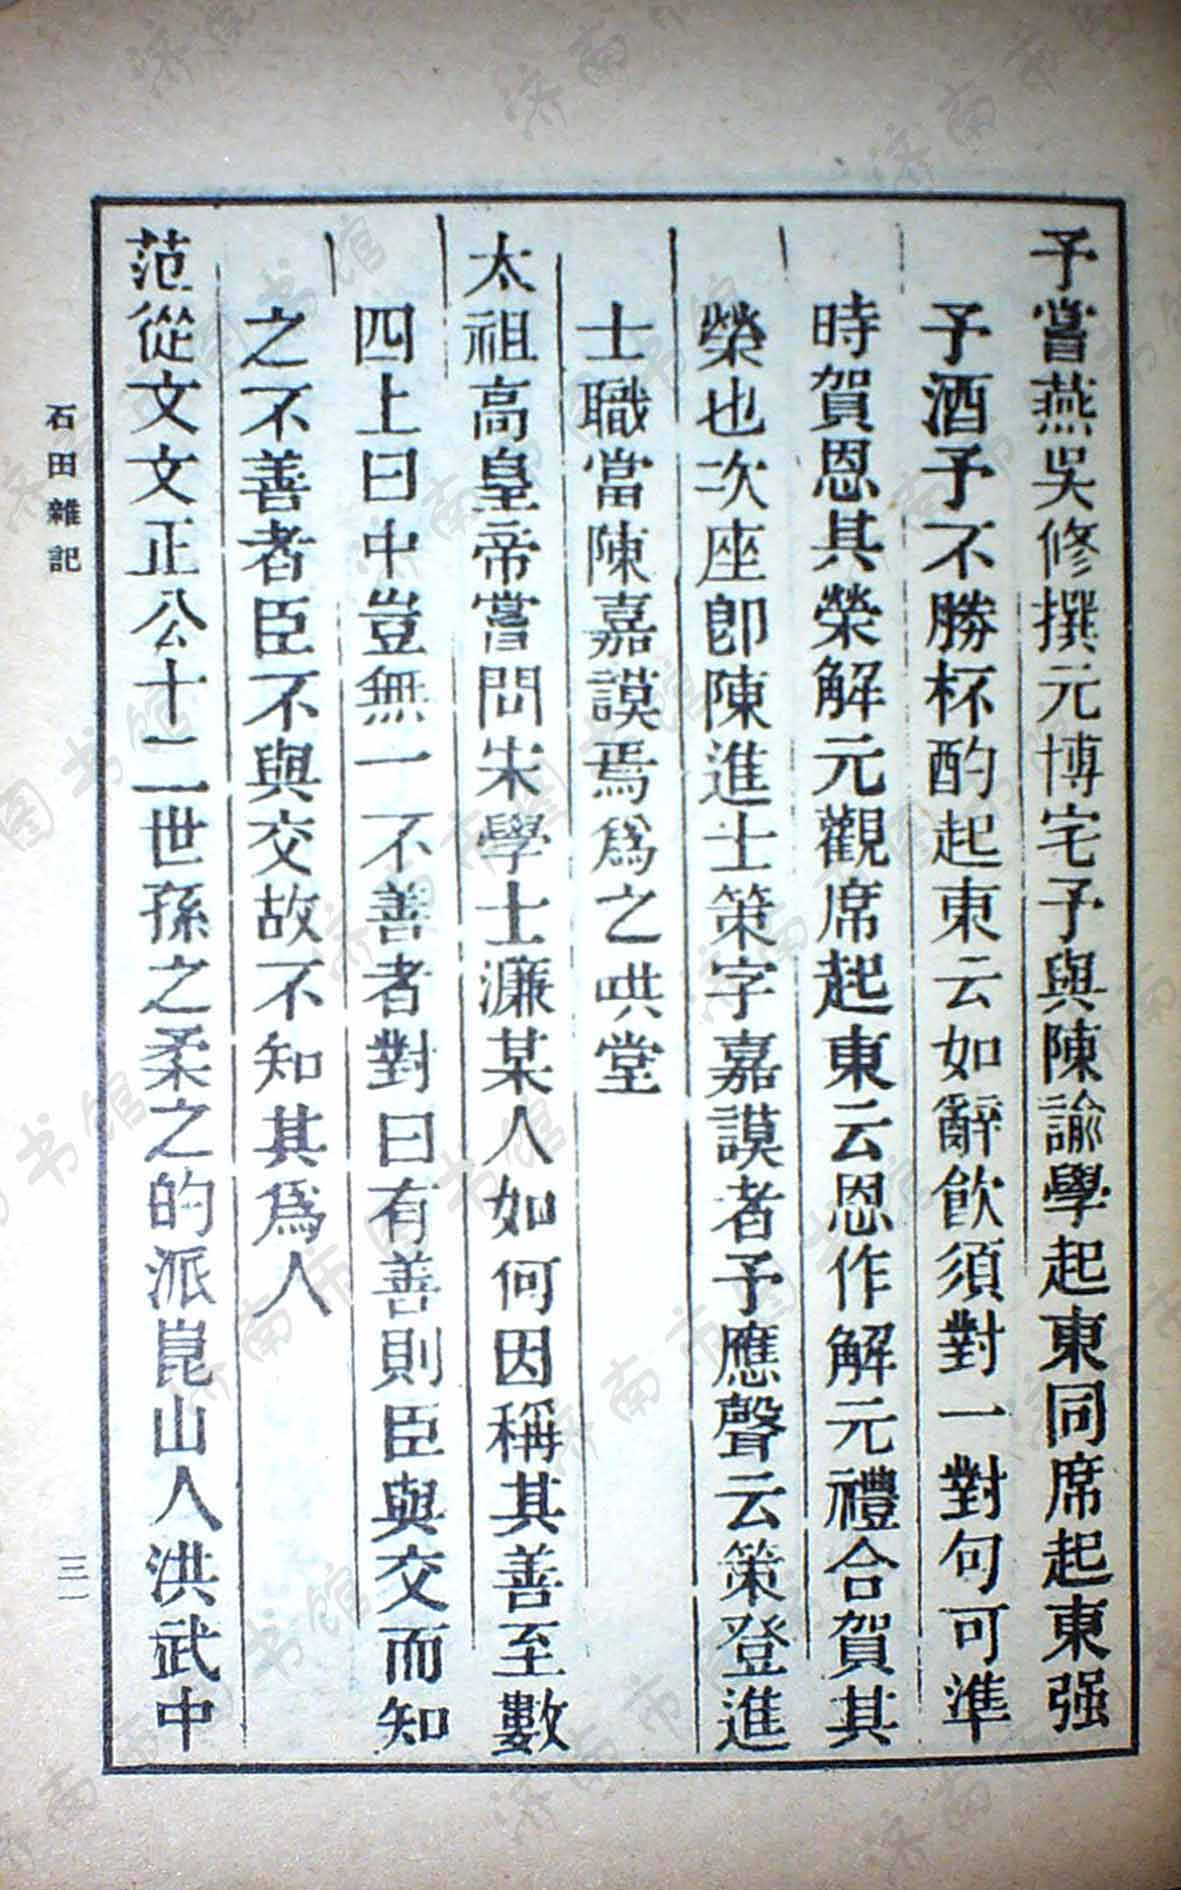 予嘗燕吳修撰元博宅予與陳諭學起東同席起東强
予酒予不勝杯酌起東云如辭飮須對一對句可準
時賀恩其榮解元觀席起東云恩作解元禮合賀其
榮也次座卽陳進士策字嘉謨者予應聲云策登進
士職當陳嘉謨焉爲之哄堂
太祖高皇帝嘗問宋學士濂某人如何因稱其善至數
四上曰中豈無一不善者對曰有善則臣與交而知
之不善者臣不與交故不知其爲人
范從文文正公十二世孫之柔之的派崑山人洪武中
石田雜記
三一
济南市图书馆